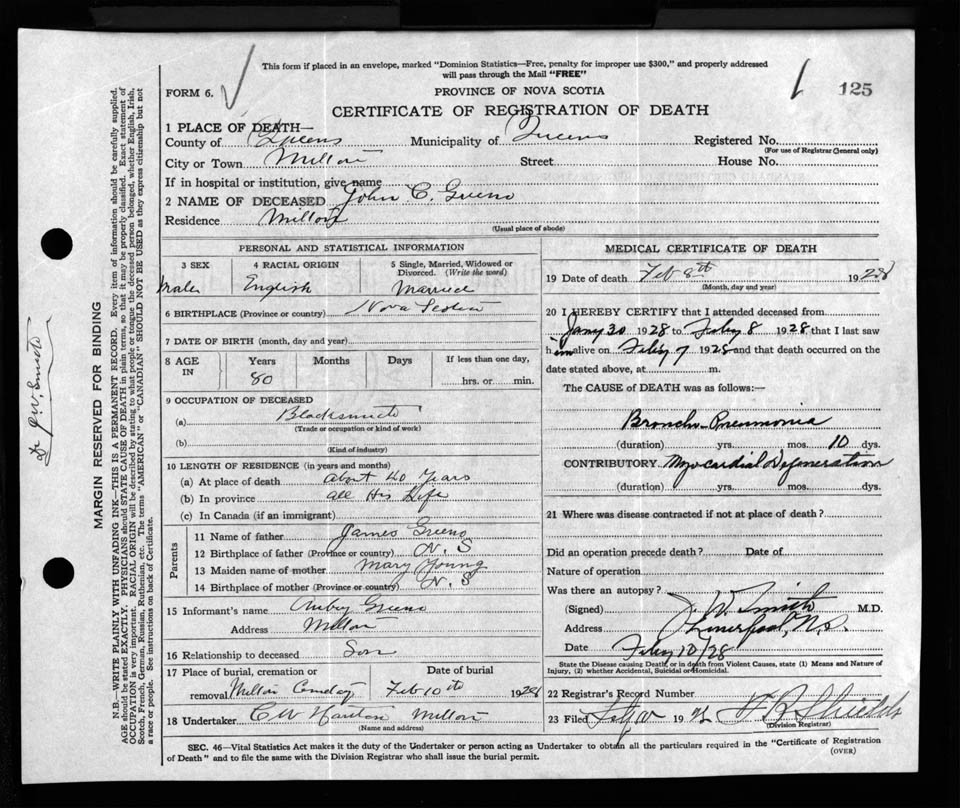 This form if placed in an envelope, marked "Dominion Statistics—Free, penalty for improper use $300," and properly addressed
will pass through the Mail "FREE"
FORM 6.
PROVINCE OF NOVA SCOTIA
125
CERTIFICATE OF REGISTRATION OF DEATH
1 PLACE OF DEATH—
County of Queens Municipality of Queens Registered No.
(For use of Registrar General only)
City or Town Milton Street House No.
If in hospital or institution, give name
2 NAME OF DECEASED John C. Greeno
Residence Milton
(Usual place of abode)
PERSONAL AND STATISTICAL INFORMATION
3 SEX 4 RACIAL ORIGIN 5 Single, Married, Widowed or Divorced. (Write the word)
Male English Married
6 BIRTHPLACE (Province or country) Nova Scotia
7 DATE OF BIRTH (month, day and year)
8 AGE IN Years Months Days If less than one day,
80 hrs. or min.
9 OCCUPATION OF DECEASED
(a) Blacksmith
(Trade or occupation or kind of work)
(b)
(Kind of industry)
10 LENGTH OF RESIDENCE (in years and months)
(a) At place of death about 40 Years
(b) In province all His Life
(c) In Canada (if an immigrant)
Parents
11 Name of father James Greeno
12 Birthplace of father (Province or country) N. S
13 Maiden name of mother Mary Young
14 Birthplace of mother (Province or country) N. S
15 Informant's name Greeno
Address Milton
16 Relationship to deceased Son
17 Place of burial, cremation or removal Milton Cemetery Date of burial Feb 10th 1928
18 Undertaker C W Milton
(Name and address)
MEDICAL CERTIFICATE OF DEATH
19 Date of death Feb 8th 1928
(Month, day and year)
20 I HEREBY CERTIFY that I attended deceased from
Jany 30 1928 to Feby 8 1928 that I last saw
him alive on Feby 7 1928 and that death occurred on the
date stated above, at m.
The CAUSE OF DEATH was as follows:—
Broncho-Pneumonia
(duration) yrs. mos. 10 dys.
CONTRIBUTORY Myocardial Degeneration
(duration) yrs. mos. dys.
21 Where was disease contracted if not at place of death?
Did an operation precede death? Date of
Nature of operation
Was there an autopsy?
(Signed) J. W. Smith M.D.
Address Liverpool, N.S.
Date Feby 10/28
State the Disease causing Death, or in death from Violent Causes, state (1) Means and Nature of
Injury, (2) whether Accidental, Suicidal or Homicidal.
22 Registrar's Record Number
23 Filed 19 Shields
(Division Registrar)
SEC. 46—Vital Statistics Act makes it the duty of the Undertaker or person acting as Undertaker to obtain all the particulars required in the "Certificate of Registration
of Death" and to file the same with the Division Registrar who shall issue the burial permit.
(OVER)
MARGIN RESERVED FOR BINDING
N.B.—WRITE PLAINLY WITH UNFADING INK—THIS IS A PERMANENT RECORD. Every item of information should be carefully supplied.
AGE should be stated EXACTLY. PHYSICIANS should STATE CAUSE OF DEATH in plain terms, so that it may be properly classified. Exact statement of
OCCUPATION is very important. RACIAL ORIGIN will be described by stating to what people or tongue the deceased person belonged, whether English, Irish,
Scotch, French, German, Russian, Ruthenian, etc. The terms "AMERICAN" or "CANADIAN" SHOULD NOT BE USED as they express citizenship but not
a race or people. See instructions on back of Certificate.
Dr J. W. Smith